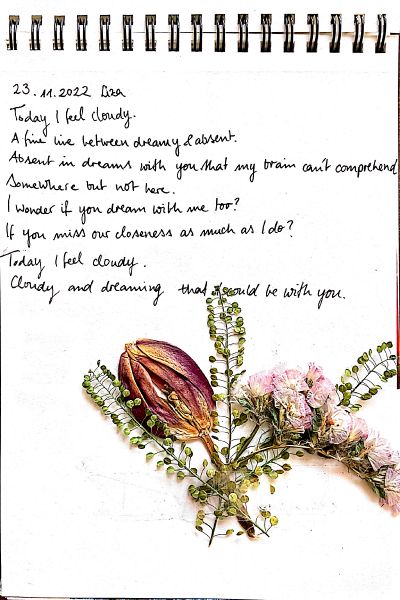 23.11.2022 Ibiza
Today I feel cloudy.
A fine line between dreamy & absent.
Absent in dreams with you that my brain can't comprehend
Somewhere but not here.
I wonder if you dream with me too?
If you miss our closeness as much as I do?
Today I feel cloudy.
Cloudy and dreaming that I could be with you.